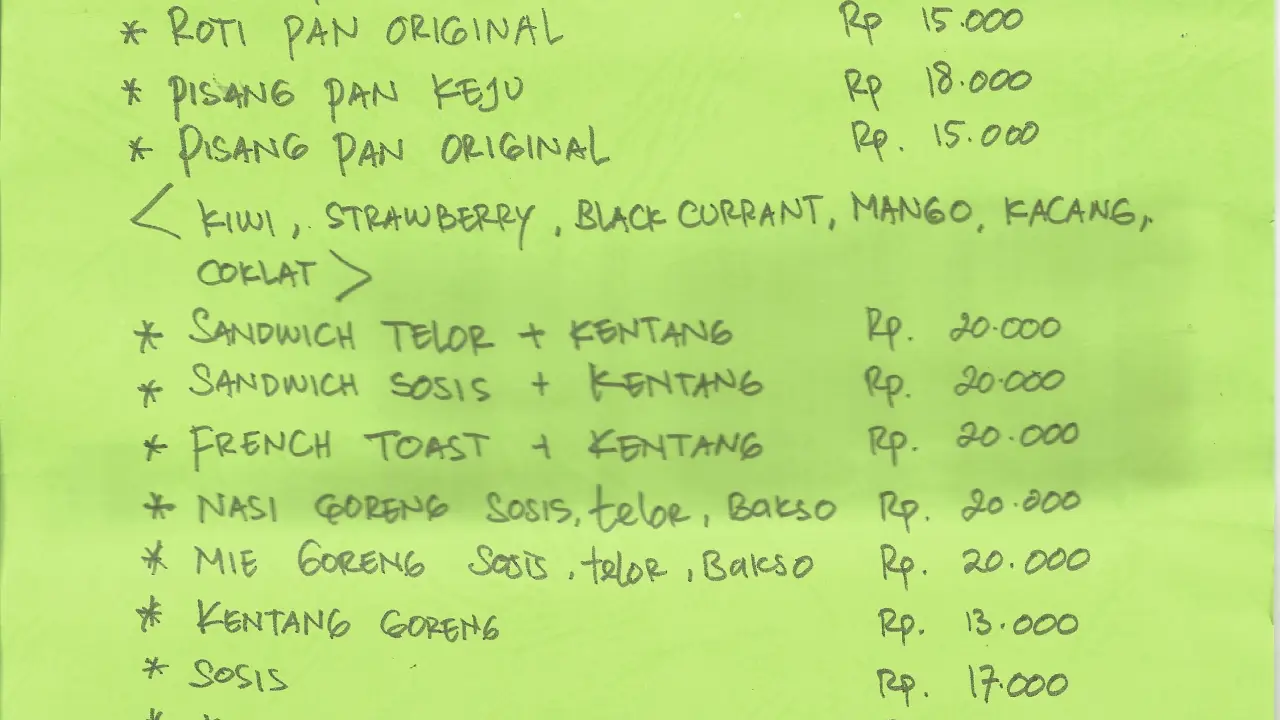 * ROTI PAN ORIGINAL Rp 15.000
* PISANG PAN KEJU Rp 18.000
* PISANG PAN ORIGINAL Rp. 15.000
< KIWI, STRAWBERRY, BLACK CURRANT, MANGO, KACANG,
COKLAT >
* SANDWICH TELOR + KENTANG Rp. 20.000
* SANDWICH SOSIS + KENTANG Rp. 20.000
* FRENCH TOAST + KENTANG Rp. 20.000
* NASI GORENG SOSIS, telor, Bakso Rp. 20.000
* MIE GORENG Sosis, telor, Bakso Rp. 20.000
* KENTANG GORENG Rp. 13.000
* SOSIS Rp. 17.000